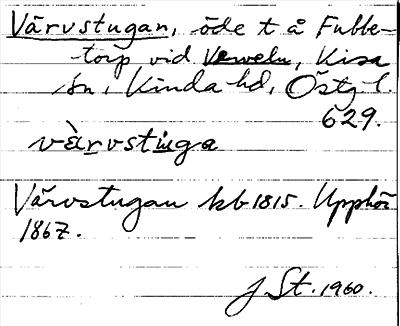 Värvstugan, öde t å Fubbe-
torp vid Verveln, Kisa
sn, Kinda hd, Östg l.
629.
värvstuga
Värvstugan kb 1815. Upphör
1867.
J St. 1960.